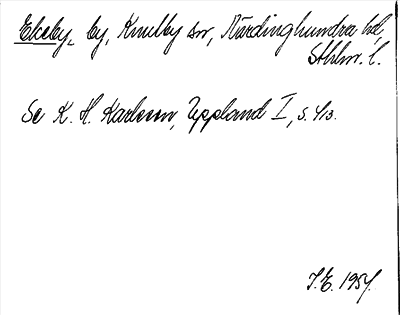 Ekeby, by, Knutby sn, Närdinghundra hd,
Sthlm. l.
Se K. H. Karlsson, Uppland I, s. 413.
J.E. 1954.